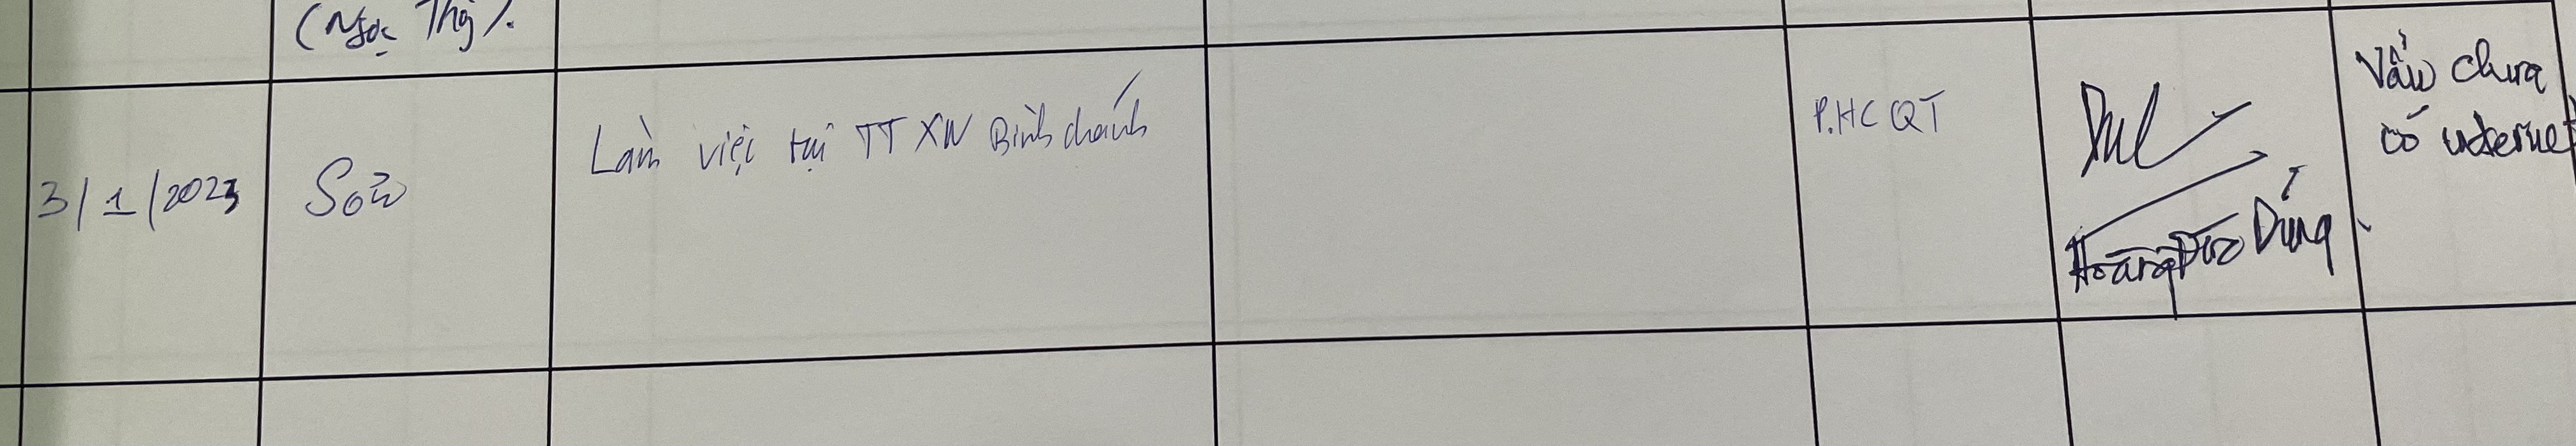 (Ngọc Thọ).
3/1/2023
Sơn
Làm việc tại TT XN Bình chánh
P.HC QT
Hoàng Đức Dũng
Vẫn chưa
có internet